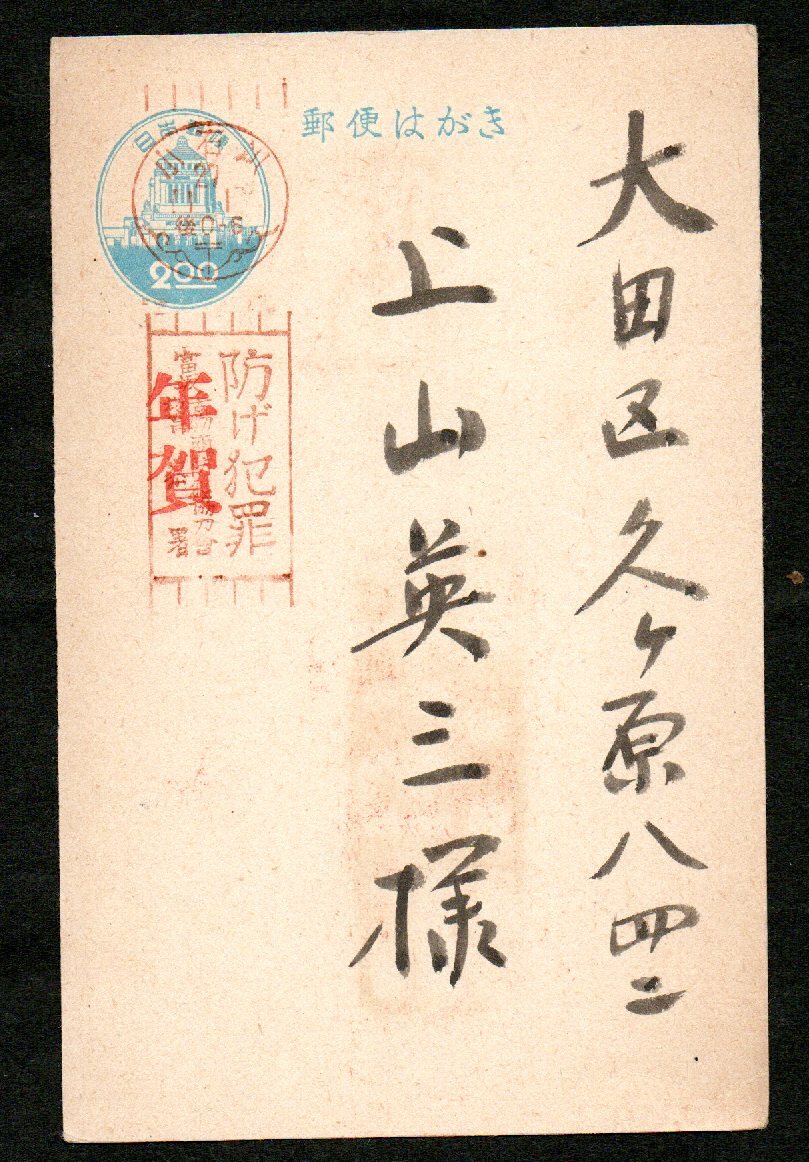 郵便はがき
2.00
後0-6
年賀
防げ犯罪
署
大田区久ヶ原八四二
上山英三様